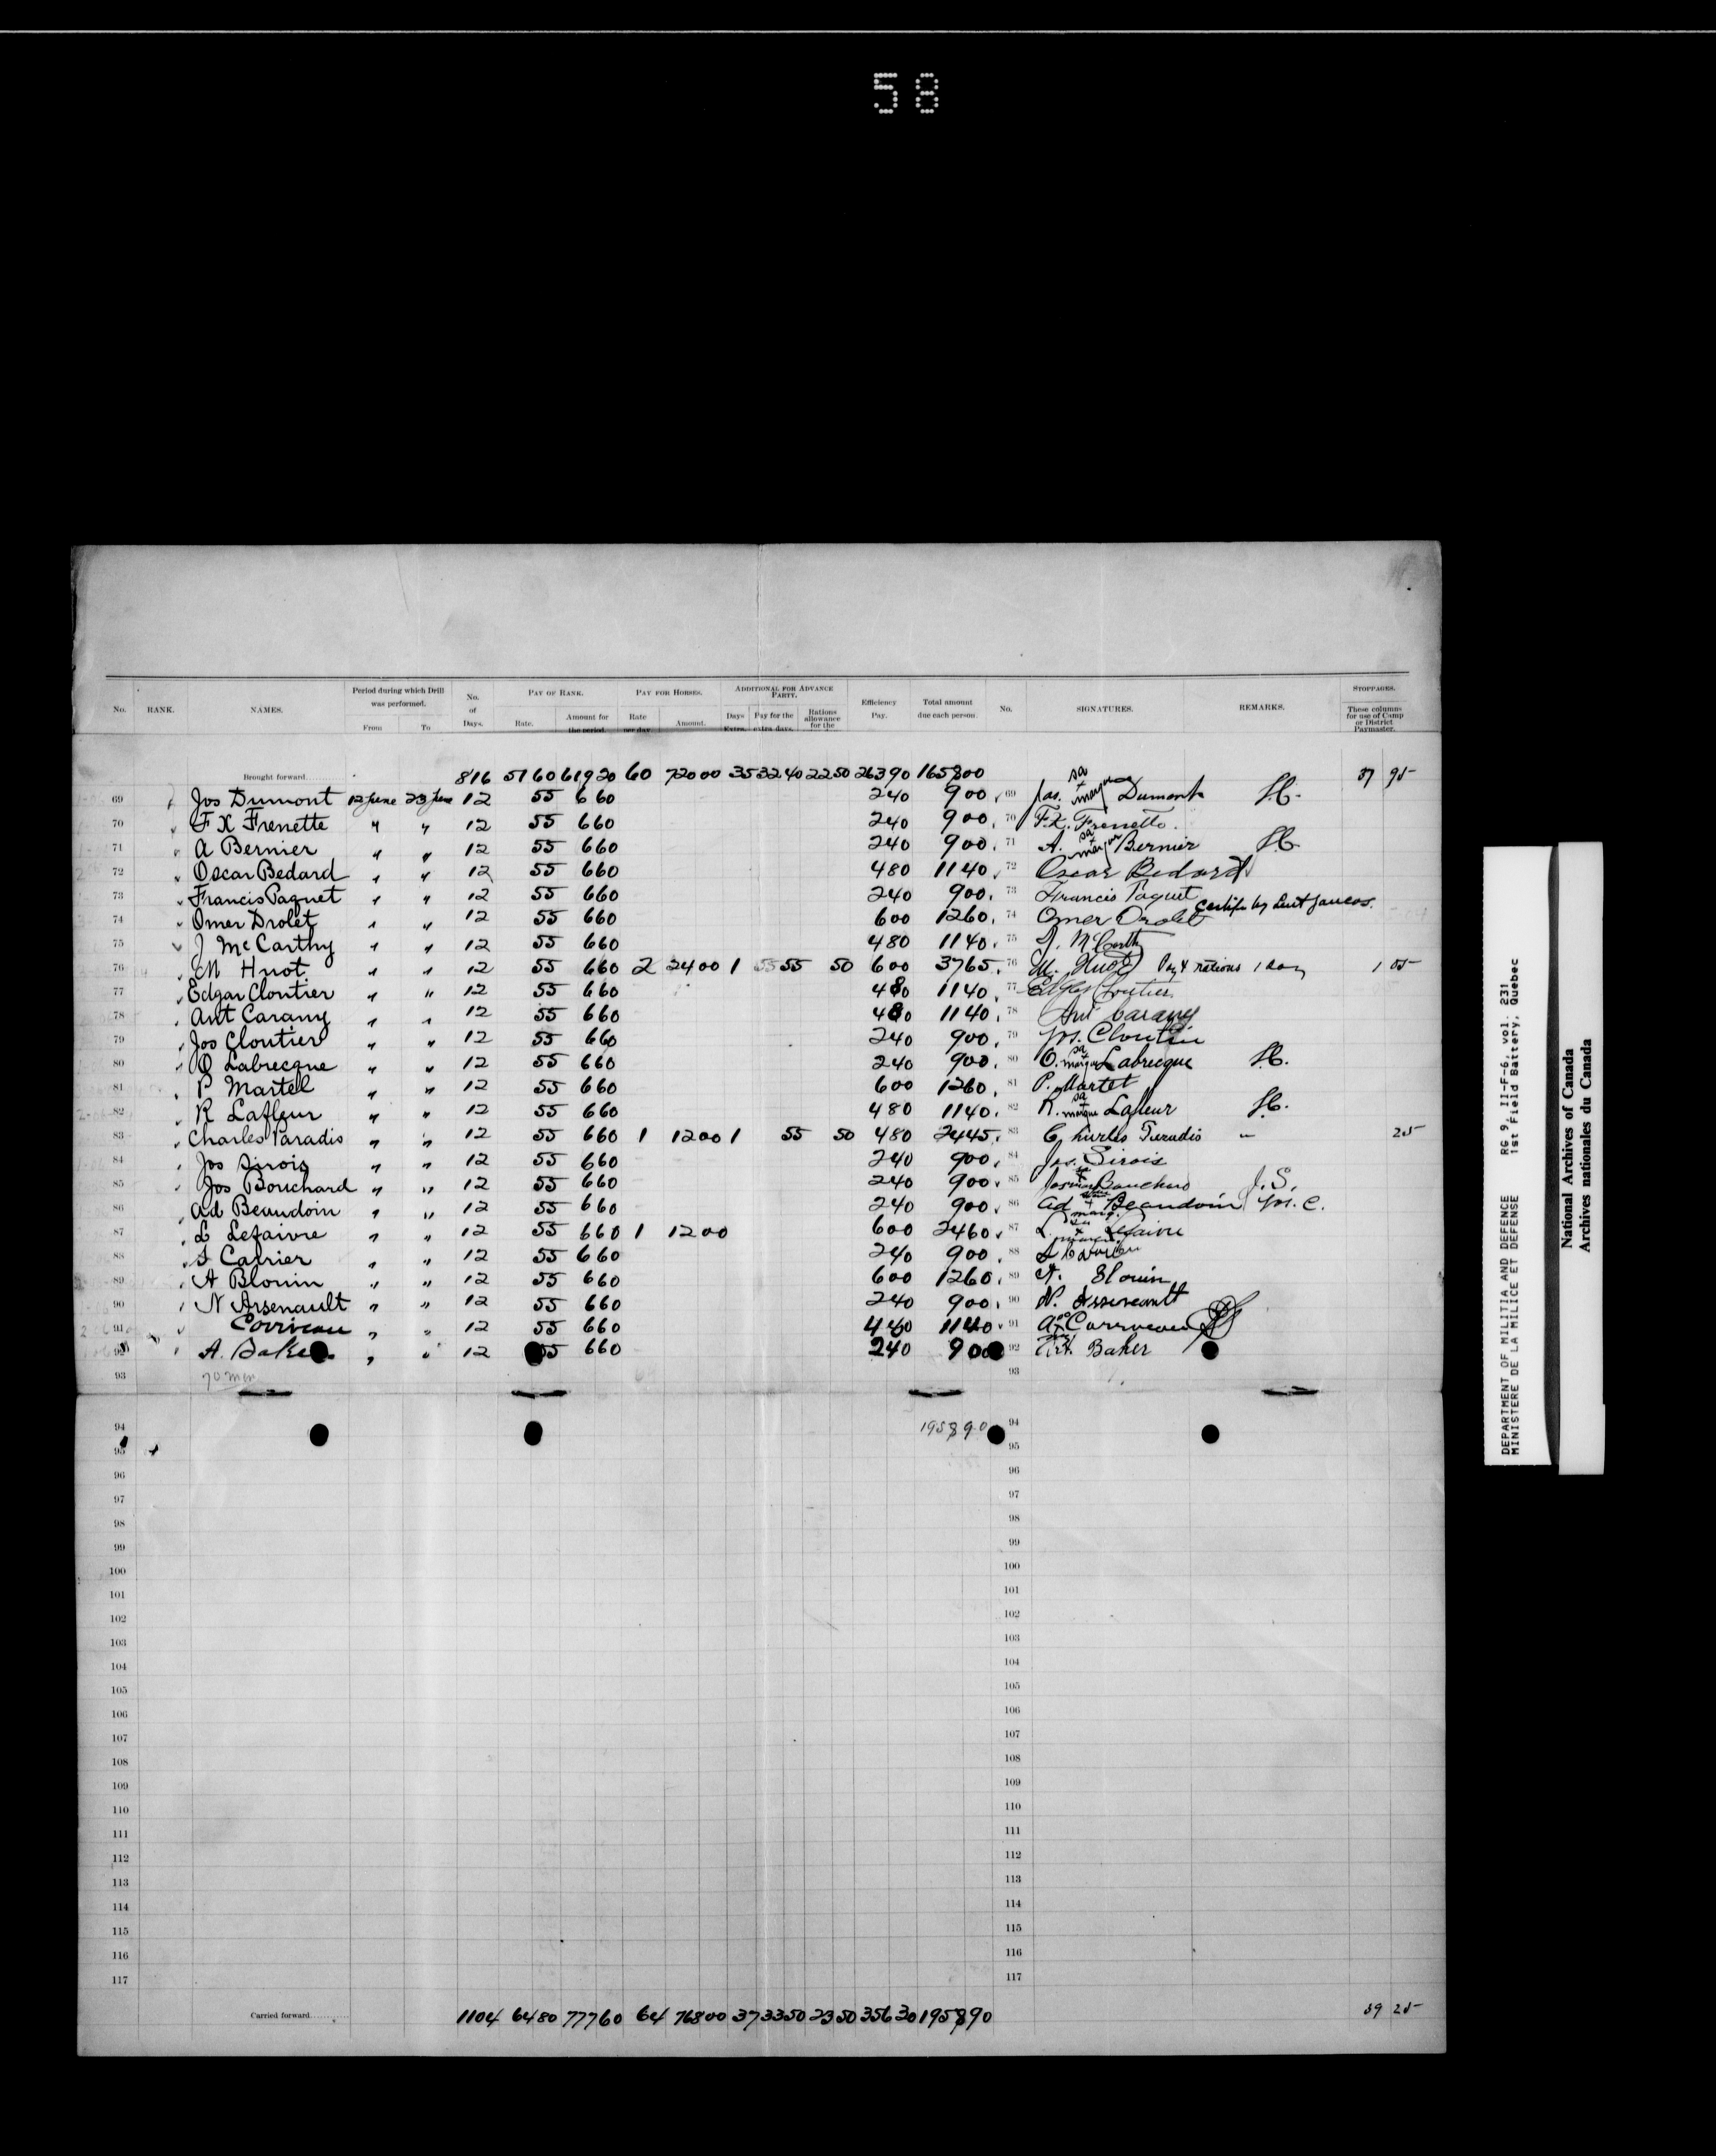 58
No. RANK. NAMES. Period during which Drill was performed. From To No. of Days. PAY OF RANK. Rate. Amount for the period. PAY FOR HORSES. Rate per day Amount. ADDITIONAL FOR ADVANCE PARTY. Days Extra. Pay for the extra days. Rations allowance for the Efficiency Pay. Total amount due each person. No. SIGNATURES. REMARKS. STOPPAGES. These columns for use of Camp or District Paymaster.
Brought forward 816 51 60 619 20 60 720 00 35 32 40 22 50 263 90 1658 00 37 95
69 Jos Dumont 12 June 23 June 12 55 6 60 2 40 9 00 69 Jos. sa + marque Dumont
70 F X Frenette " " 12 55 6 60 2 40 9 00 70 F.X. Frenette
71 A Bernier " " 12 55 6 60 2 40 9 00 71 A. sa + marque Bernier
72 Oscar Bedard " " 12 55 6 60 4 80 11 40 72 Oscar Bedard
73 Francis Paquet " " 12 55 6 60 2 40 9 00 73 Francis Paquet
74 Omer Drolet " " 12 55 6 60 6 00 12 60 74 Omer Drolet Certifie by Lieut
75 J McCarthy " " 12 55 6 60 4 80 11 40 75 J. McCarthy
76 M Huot " " 12 55 6 60 2 24 00 1 55 50 6 00 37 65 76 M. Huot Pay & rations 1 day 1 05
77 Edgar Cloutier " " 12 55 6 60 4 80 11 40 77 Edgar Cloutier
78 Ant Carany " " 12 55 6 60 4 80 11 40 78 Ant Carany
79 Jos Cloutier " " 12 55 6 60 2 40 9 00 79 Jos. Cloutier
80 O Labrecque " " 12 55 6 60 2 40 9 00 80 O. sa + marque Labrecque
81 P Martel " " 12 55 6 60 6 00 12 60 81 P. Martel
82 R Lafleur " " 12 55 6 60 4 80 11 40 82 R. sa + marque Lafleur
83 Charles Paradis " " 12 55 6 60 1 12 00 1 55 50 4 80 24 45 83 Charles Paradis " 25
84 Jos Sirois " " 12 55 6 60 2 40 9 00 84 Jos. Sirois
85 Jos Bouchard " " 12 55 6 60 2 40 9 00 85 Bouchard J.S.
86 Ad Beaudoin " " 12 55 6 60 2 40 9 00 86 Ad + Beaudoin Jos. C.
87 L Lefaivre " " 12 55 6 60 1 12 00 6 00 24 60 87 L. Lefaivre
88 Carrier " " 12 55 6 60 2 40 9 00 88
89 A Blouin " " 12 55 6 60 6 00 12 60 89 A. Blouin
90 N Arsenault " " 12 55 6 60 2 40 9 00 90 N. Arseneault
91 Corriveau " " 12 55 6 60 4 80 11 40 91 Corriveau
92 A. Baker " " 12 55 6 60 2 40 9 00 92 Art. Baker
93 70 men 93
94 1958 90 94
95 95
96 96
97 97
98 98
99 99
100 100
101 101
102 102
103 103
104 104
105 105
106 106
107 107
108 108
109 109
110 110
111 111
112 112
113 113
114 114
115 115
116 116
117 117
Carried forward 1104 64 80 777 60 64 768 00 37 33 50 23 50 356 30 1958 90 39 25
DEPARTMENT OF MILITIA AND DEFENCE RG 9, II-F-6, vol. 231
MINISTERE DE LA MILICE ET DEFENSE 1st Field Battery, Quebec
National Archives of Canada
Archives nationales du Canada